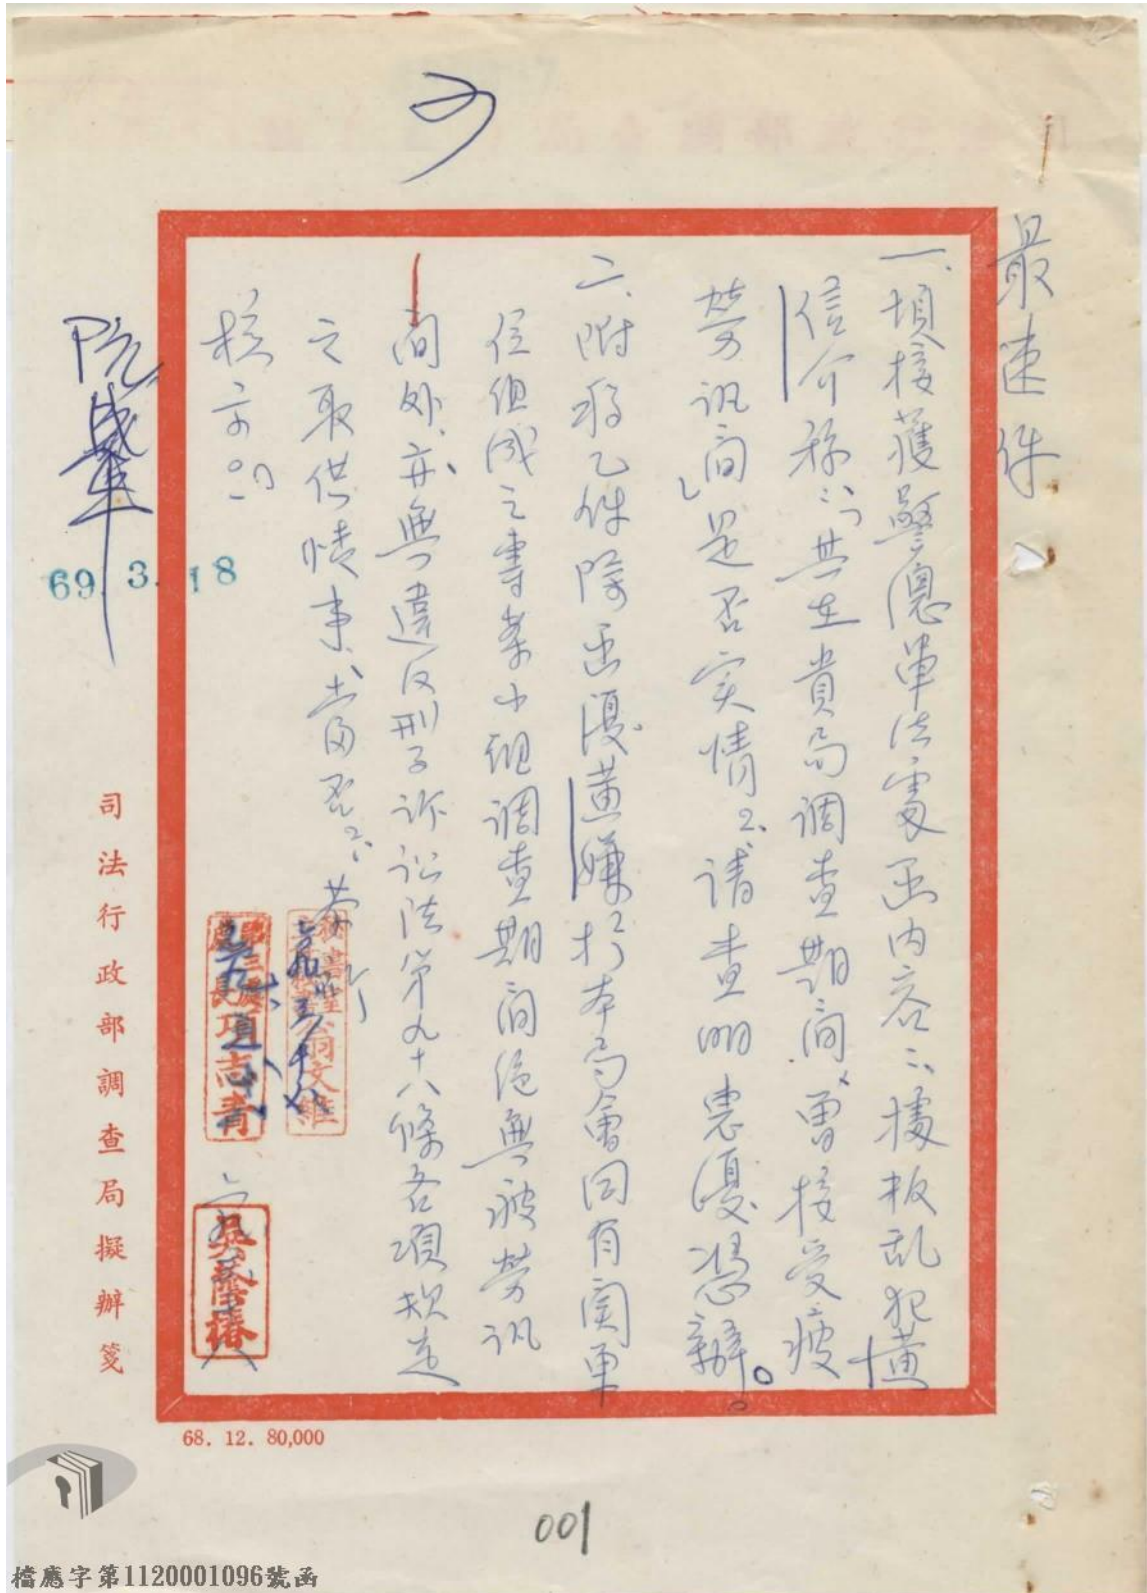 最速件
一、頃接獲警總軍法處函內容:據叛乱犯黃
信介称:「其在貴局調查期間,曾接受疲
勞訊問」是否实情?請查明惠復憑辦。
二、附稿乙件除函復黃嫌於本局會同有關單
位組成之專案小組調查期間絕無疲勞訊
問外、亦無違反刑事訴訟法第九十八條各項規定
之取供情事,當否?恭請
核示。
阮成章
69. 3. 18
項志青
司法行政部調查局擬辦箋
68. 12. 80,000
001
檔應字第1120001096號函